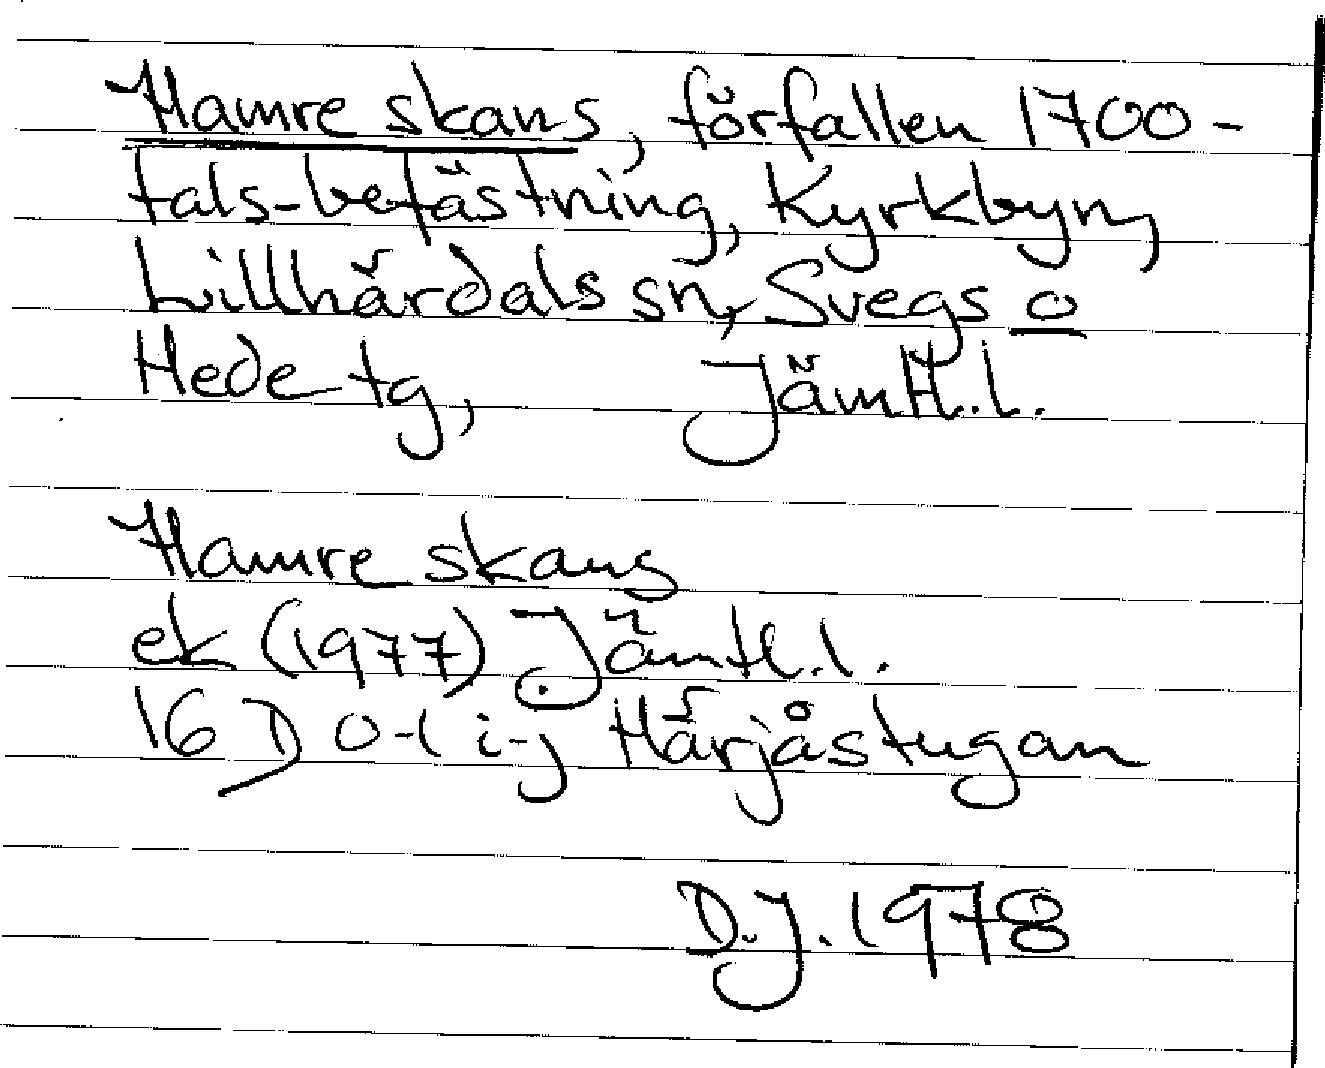 Hamre skans, förfallen 1700-
tals-befästning, Kyrkbyn,
Lillhärdals sn, Svegs o
Hede tg, Jämtl.l.
Hamre skans
ek (1977) Jämtl.l.
16 D 0-1 i-j Härjåstugan
D.J. 1978